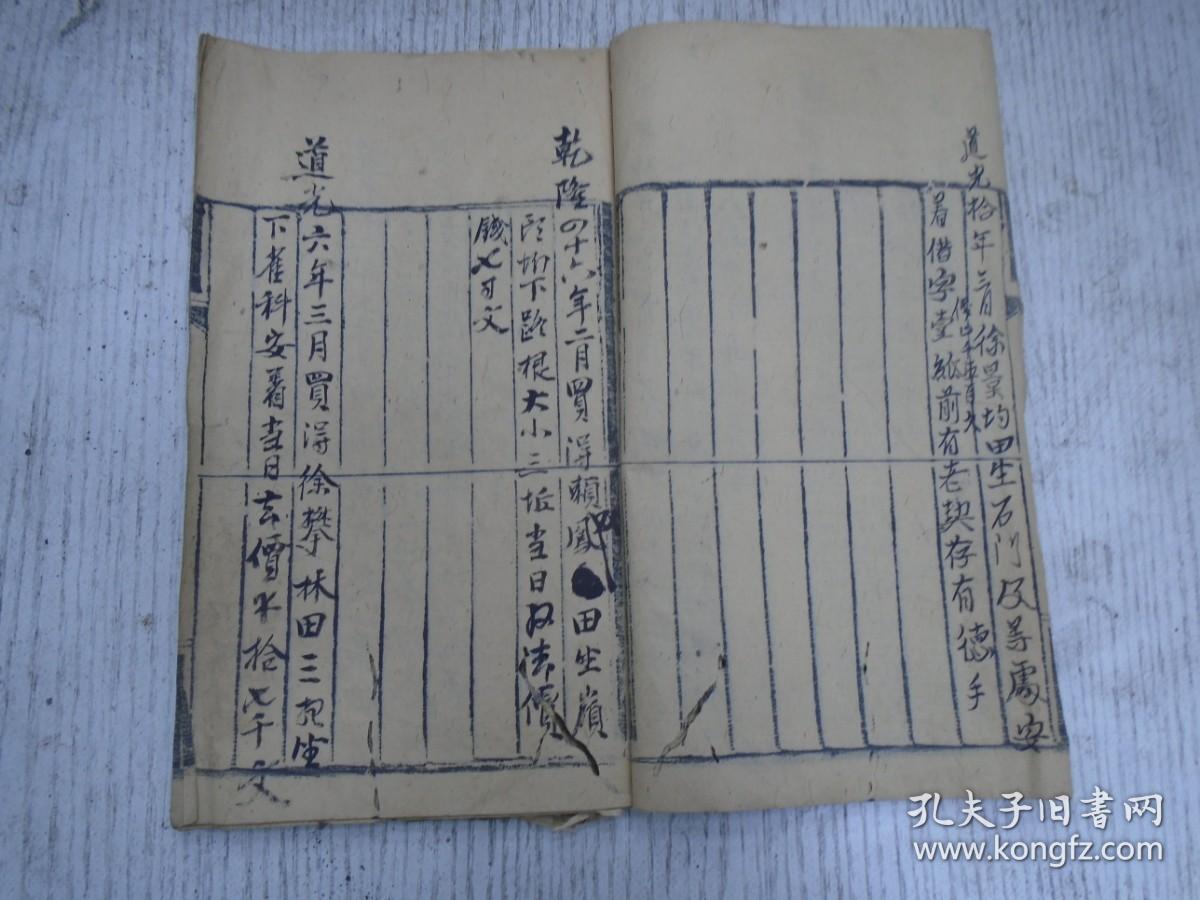 道光拾年三月徐景均田坐石門及等處安
着借字壹紙前有老契存有德手
乾隆四十六年二月買得賴鳳田坐嶺
均下路根大小三坵当日价法價
錢七百文
道光六年三月買得徐攀林田三坵坐
下雀科安着当日去價水拾七千文
孔夫子旧书网
www.kongfz.com